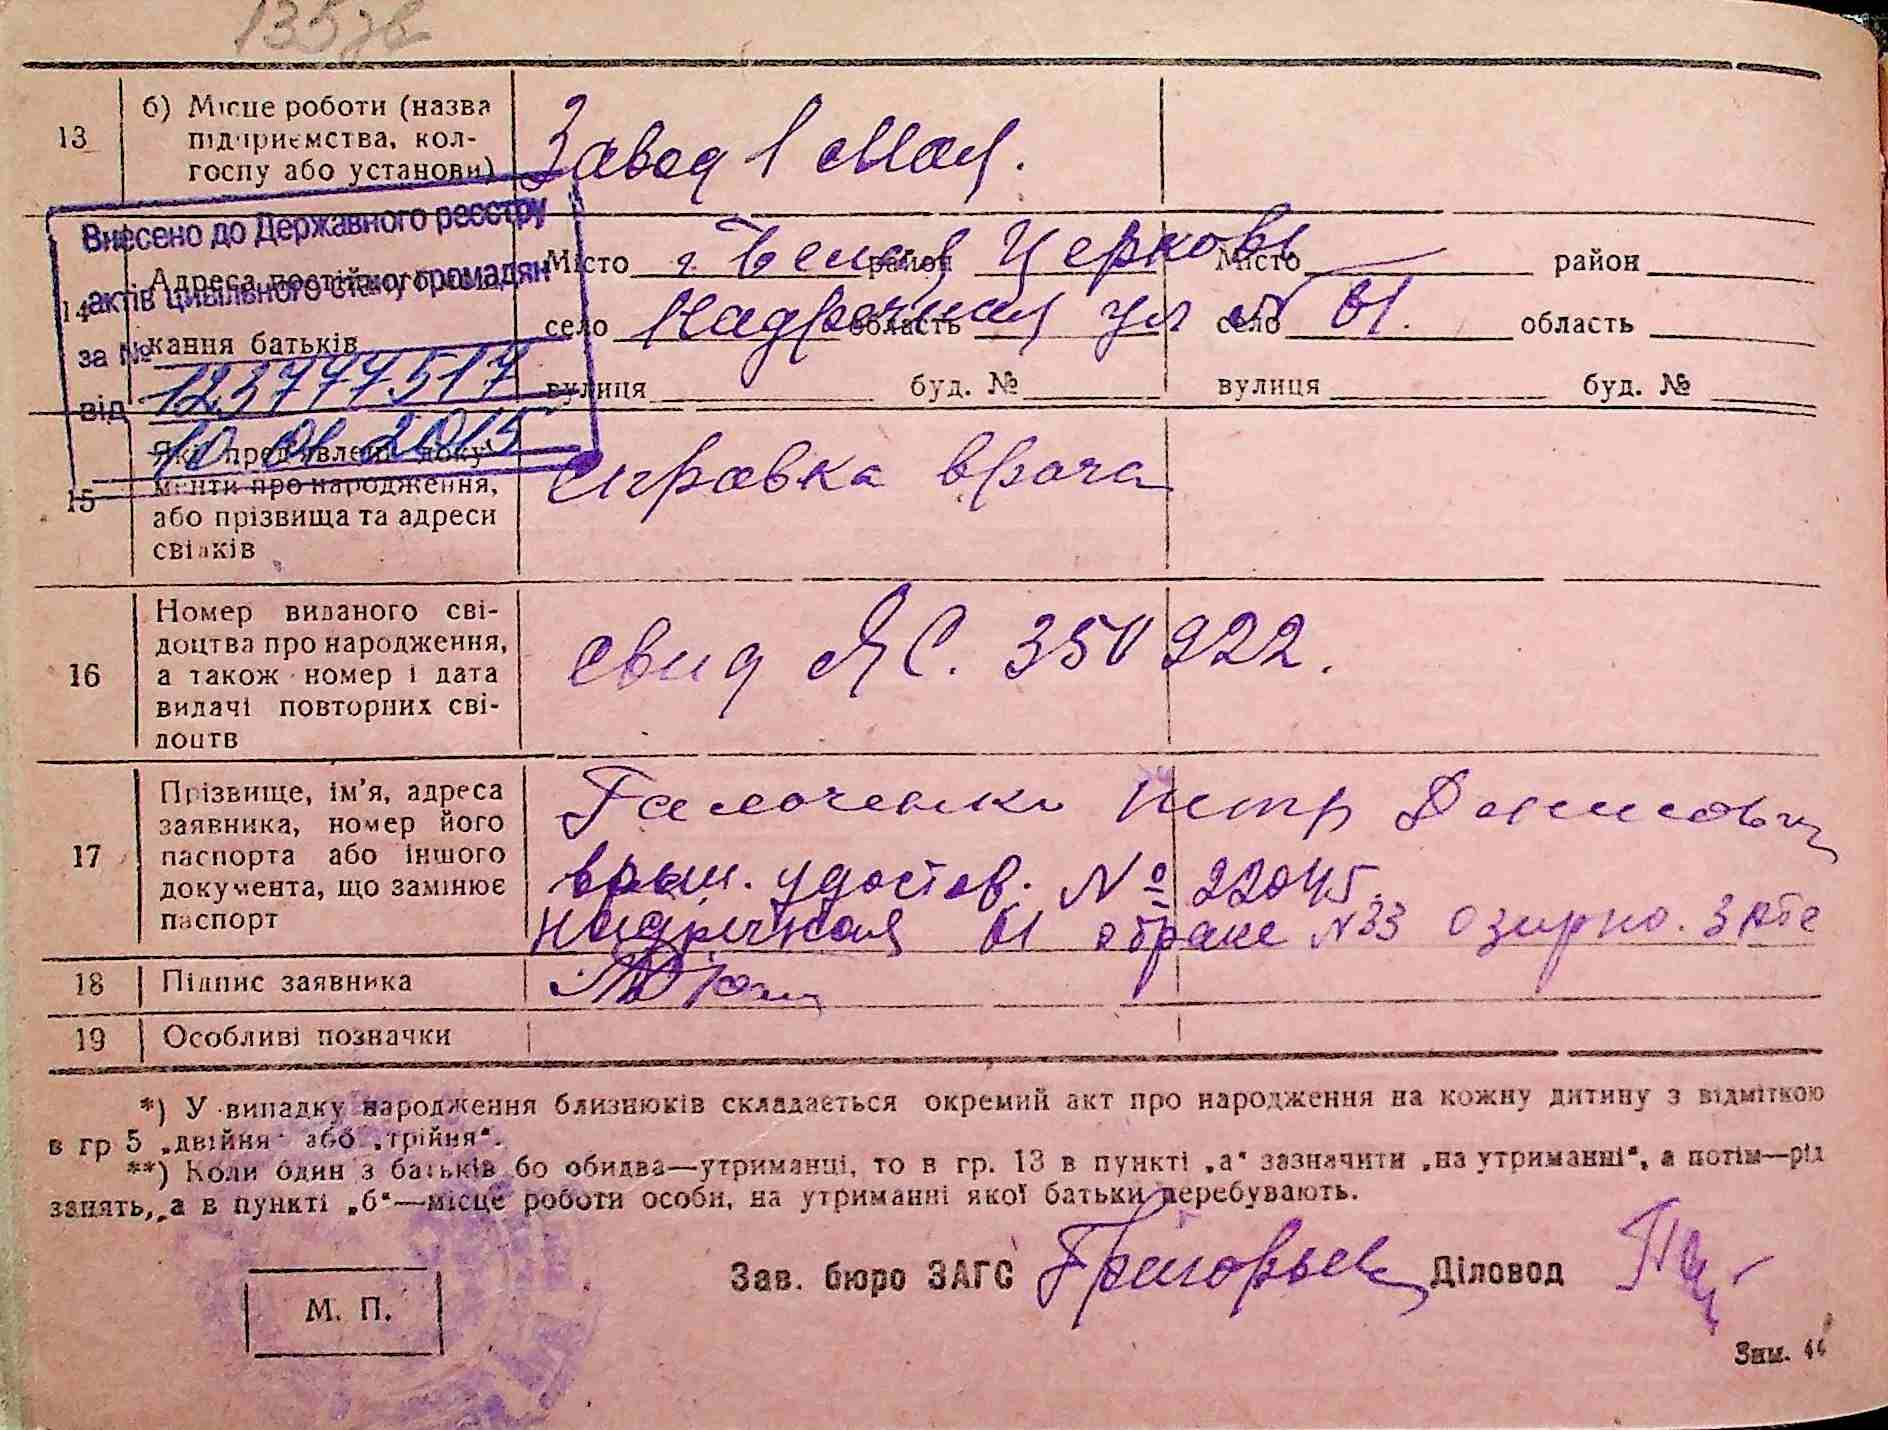 135зв
13 б) Місце роботи (назва
підприємства, кол-
госпу або установи)
Завод 1 Мая.
Внесено до Державного реєстру
актів цивільного стану громадян
за № 123777517
від 10 01 2015
14 Адреса постійного
кання батьків
Місто г. Белая район Церковь Місто район
село Надречная область ул № 61. село область
вулиця буд. № вулиця буд. №
15 Які пред'явлені доку-
менти про народження,
або прізвища та адреси
свідків
справка врача
16 Номер виданого сві-
доцтва про народження,
а також номер і дата
видачі повторних сві-
доцтв
свид ЯС. 350922.
17 Прізвище, ім'я, адреса
заявника, номер його
паспорта або іншого
документа, що замінює
паспорт
Петр Денисович
удостов. № 22045.
Надречная 61 о браке №33
18 Підпис заявника
19 Особливі позначки
*) У випадку народження близнюків складається окремий акт про народження на кожну дитину з відміткою
в гр 5 „двійня" або „трійня".
**) Коли один з батьків бо обидва—утриманці, то в гр. 13 в пункті „а" зазначити „на утриманні", а потім—рід
занять, а в пункті „б"—місце роботи особи, на утриманні якої батьки перебувають.
Зав. бюро ЗАГС Григорьев Діловод
М. П.
Зим. 44